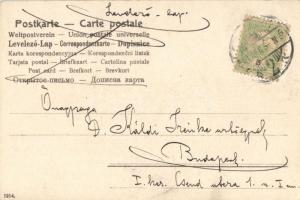 Levelező-lap.
Postkarte — Carte postale
Weltpostverein — Union postale universelle
Levelező-Lap — Correspondenzkarte — Dopisnice
Karta korespondencyjna — Korespondenční lístek
Tarjeta postal — Briefkaart — Cartolina postale
Post card — Brefkort — Brevkort
Открытое письмо — Дописна карта
Önagysága
D. Káldi Irénke
Budapest.
I. ker. Csend utcza 1. I em
1914.